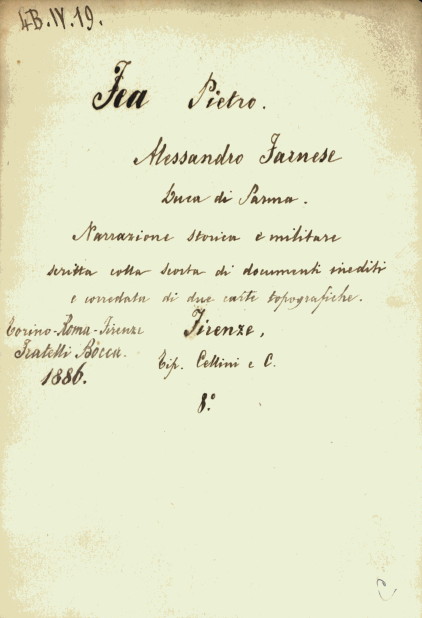 4B.IV.19.
Fea Pietro.
Alessandro Farnese
Duca di Parma.
Narrazione storica e militare
scritta colla scorta di documenti inediti
e corredata di due carte topografiche.
Torino-Roma-Firenze
Fratelli Bocca.
1886.
Firenze,
Tip. Cellini e C.
8.º